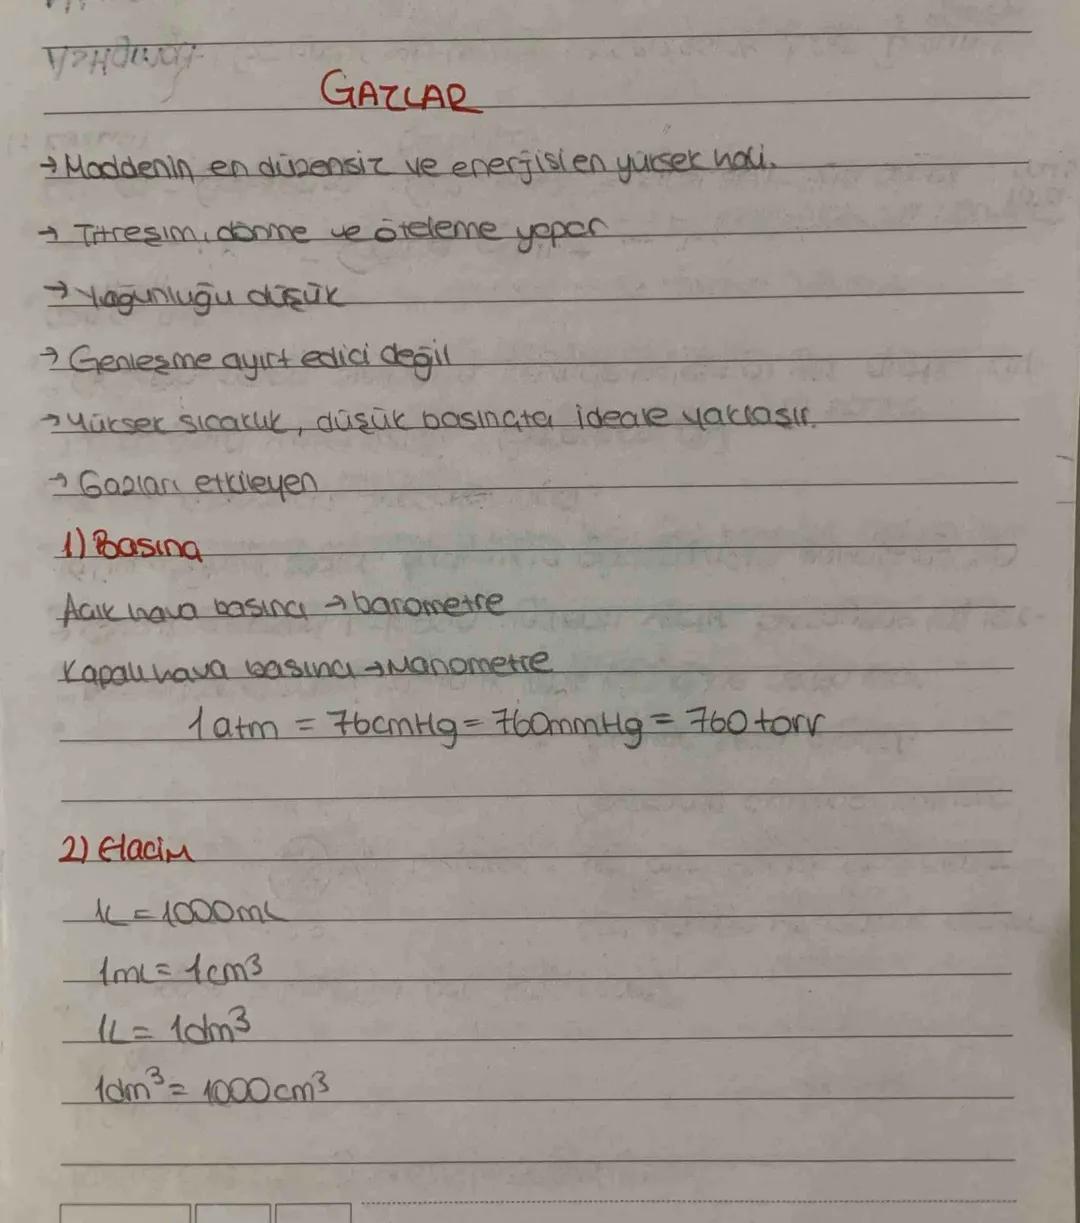 GAZLAR
→ Maddenin en düzensiz ve enerjisi en yüksek hali.
→ Titreşim, dönme ve öteleme yapar
→ Yoğunluğu düşük
→ Genleşme ayırt edici değil
→ Yüksek sıcaklık, düşük basınçta ideale yaklaşır.
→ Gazları etkileyen
1) Basınç
Açık hava basıncı → barometre
Kapalı hava basıncı → Manometre
1 atm = 76cmHg = 760mmHg = 760 torr
2) Hacim
1L = 1000mL
1mL = 1cm³
1L = 1dm³
1dm³ = 1000cm³